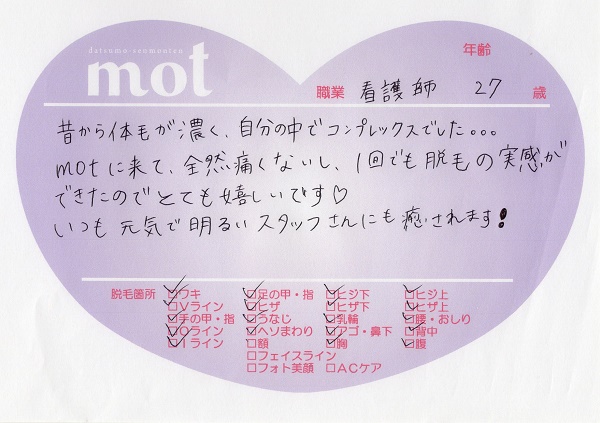 datsumo-senmonten
mot
年齢
職業 看護師 27 歳
昔から体毛が濃く、自分の中でコンプレックスでした。。。
motに来て、全然痛くないし、1回でも脱毛の実感が
できたのでとても嬉しいです♡
いつも元気で明るいスタッフさんにも癒されます!
脱毛箇所 ☑ワキ ☑足の甲・指 ☑ヒジ下 ☑ヒジ上
☑Vライン ☑ヒザ ☑ヒザ下 ☑ヒザ上
☑手の甲・指 ☑うなじ ☑乳輪 ☑腰・おしり
☑Oライン ☑ヘソまわり ☑アゴ・鼻下 ☑背中
☑Iライン □額 ☑胸 ☑腹
□フェイスライン
□フォト美顔 □ACケア